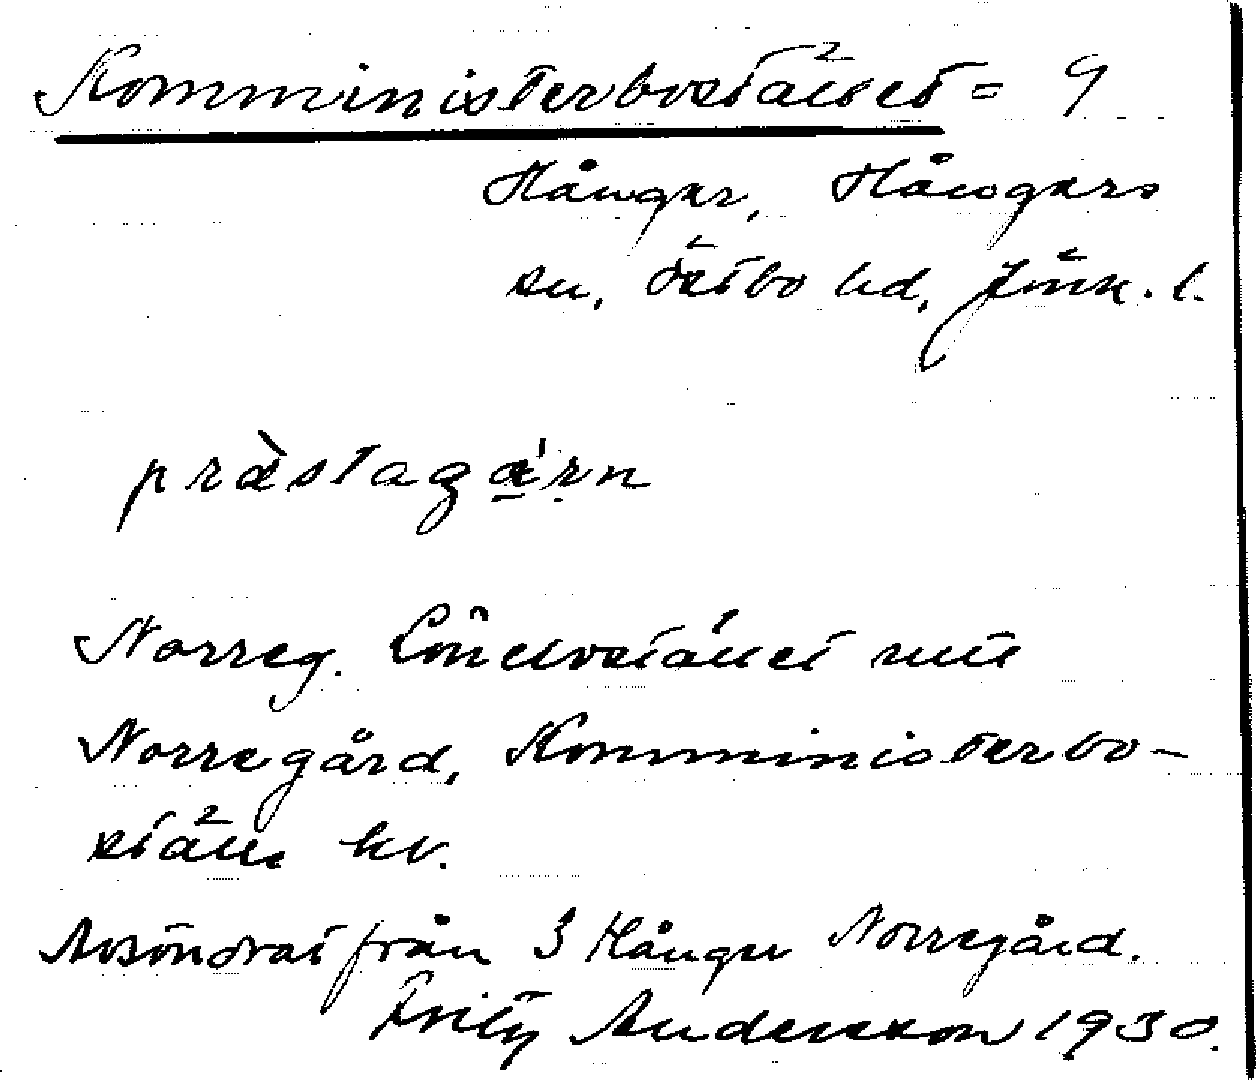 Komministerbostället = 9
Hånger, Hångers
sn, Östbo hd, Jönk. l.
prästagạ̈rn
Norreg. Lönebostället med
Norregård, Komministerbo-
ställe hv.
Avsöndrat från 3 Hånger Norregård.
Fritz Andersson 1930.